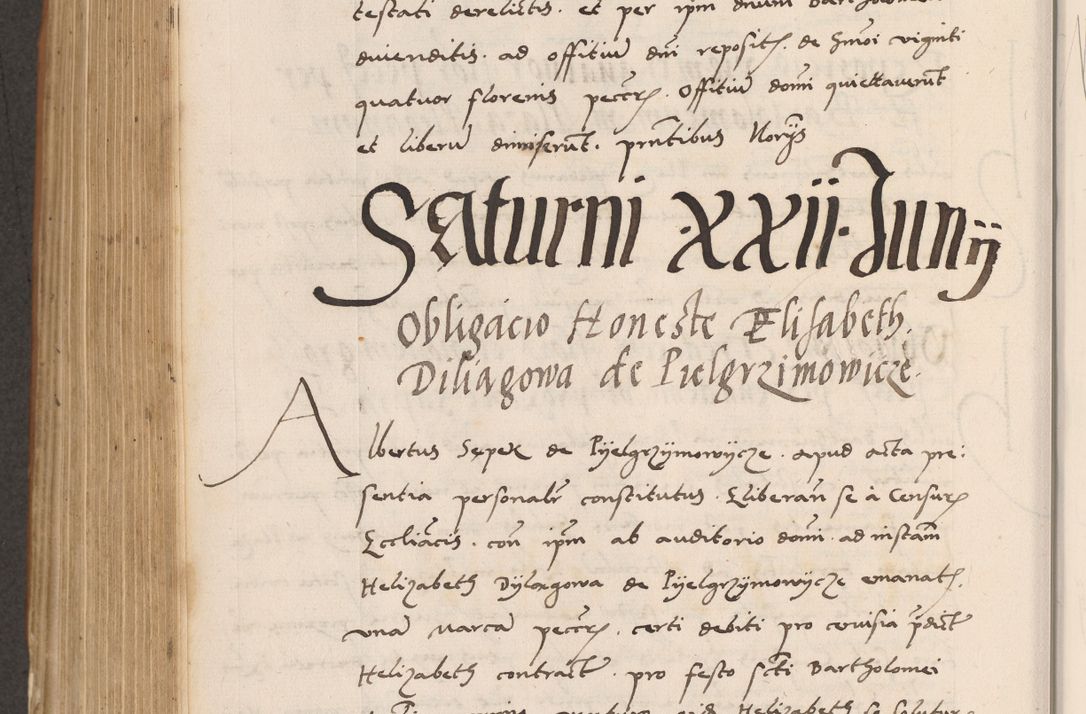 testati derelictis. et per ipm
divenditis. ad offitiu dni reposit. de viginti
quatuor florenis peccr. Offitiu domi quiettaverut
et liberu dimiserut. prntibus Norijs
Saturni .xxii. Junij
Obligacio Honeste Elisabeth.
Diliagowa de Pielgrzimowicze.
Albertus Sępek de Pyelgrzymowycze. apud acta pre:
sentia personalr constitutus. se a Censur
Eccliacis. con ipm ab auditorio domi. ad instam
Helizabeth Dylągowa de Pyelgrzymowycze emanat.
una marca peccr. certi debiti pro cervisia pdict
Helizabeth contract. pro festo scti Bartholomei